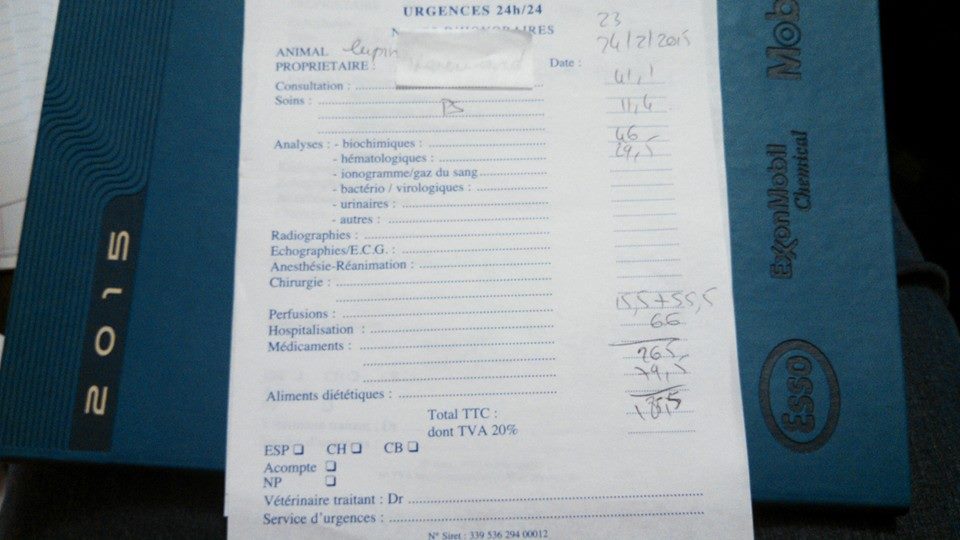 URGENCES 24h/24
N HONORAIRES
23
24/2/2015
ANIMAL
PROPRIETAIRE :
Date :
Consultation : 41,1
Soins : PS 11,4
Analyses : - biochimiques : 46
- hématologiques : 29,5
- ionogramme/gaz du sang
- bactério / virologiques :
- urinaires :
- autres :
Radiographies :
Echographies/E.C.G. :
Anesthésie-Réanimation :
Chirurgie :
Perfusions : 15,5+55,5
Hospitalisation : 66
Médicaments : 265
79,5
Aliments diététiques :
Total TTC :
dont TVA 20%
ESP CH CB
Acompte
NP
Vétérinaire traitant : Dr
Service d'urgences :
N° Siret : 339 536 294 00012
2015
Mob
ExxonMobil
Chemical
Esso